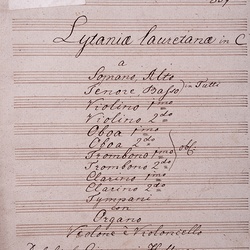 Lytaniæ lauretanæ in C
a
Soprano, Alto
Tenore Basso in Tutti
Violino 1mo
Violino 2do
Oboa 1mo
Oboa 2do
Trombono 1mo obl.
Trombono 2do
Clarino 1mo
Clarino 2do
Tympani
con
Organo
Violone e Violoncello